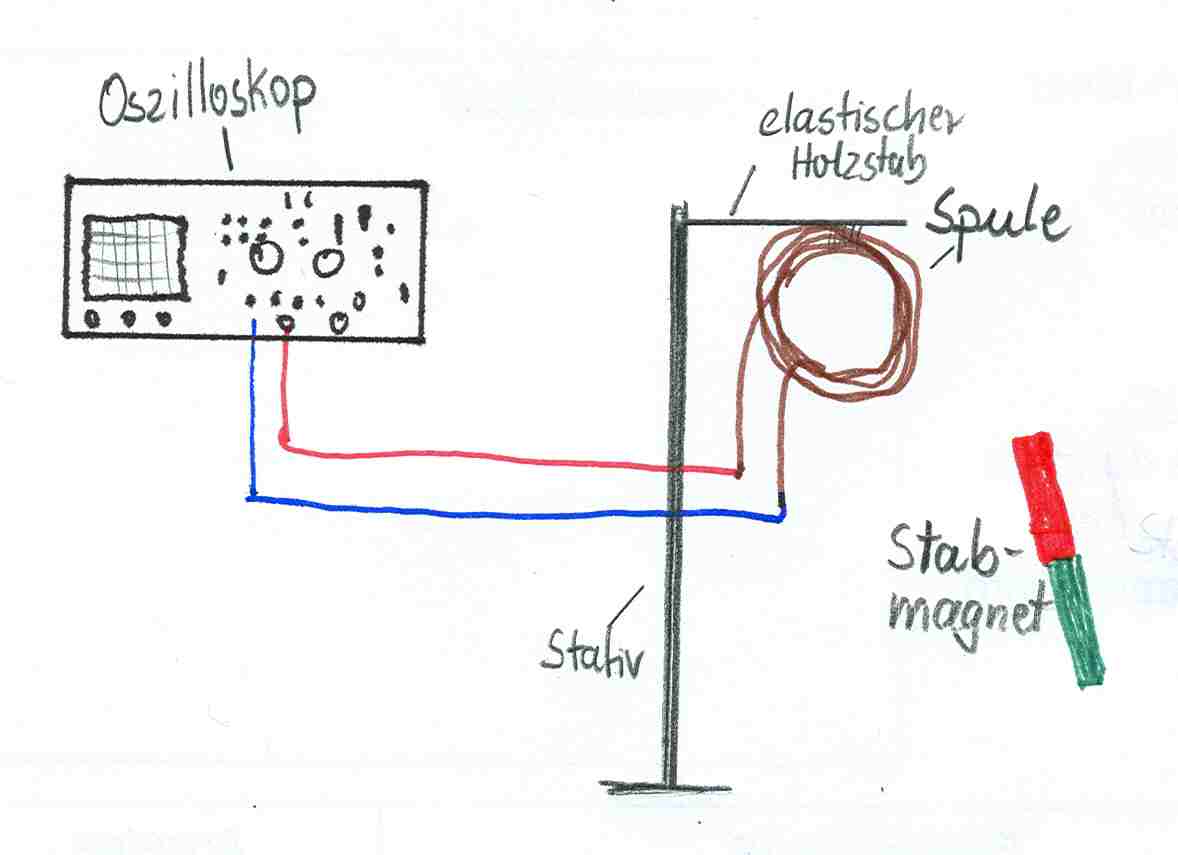 Oszilloskop
elastischer
Holzstab
Spule
Stab-
magnet
Stativ